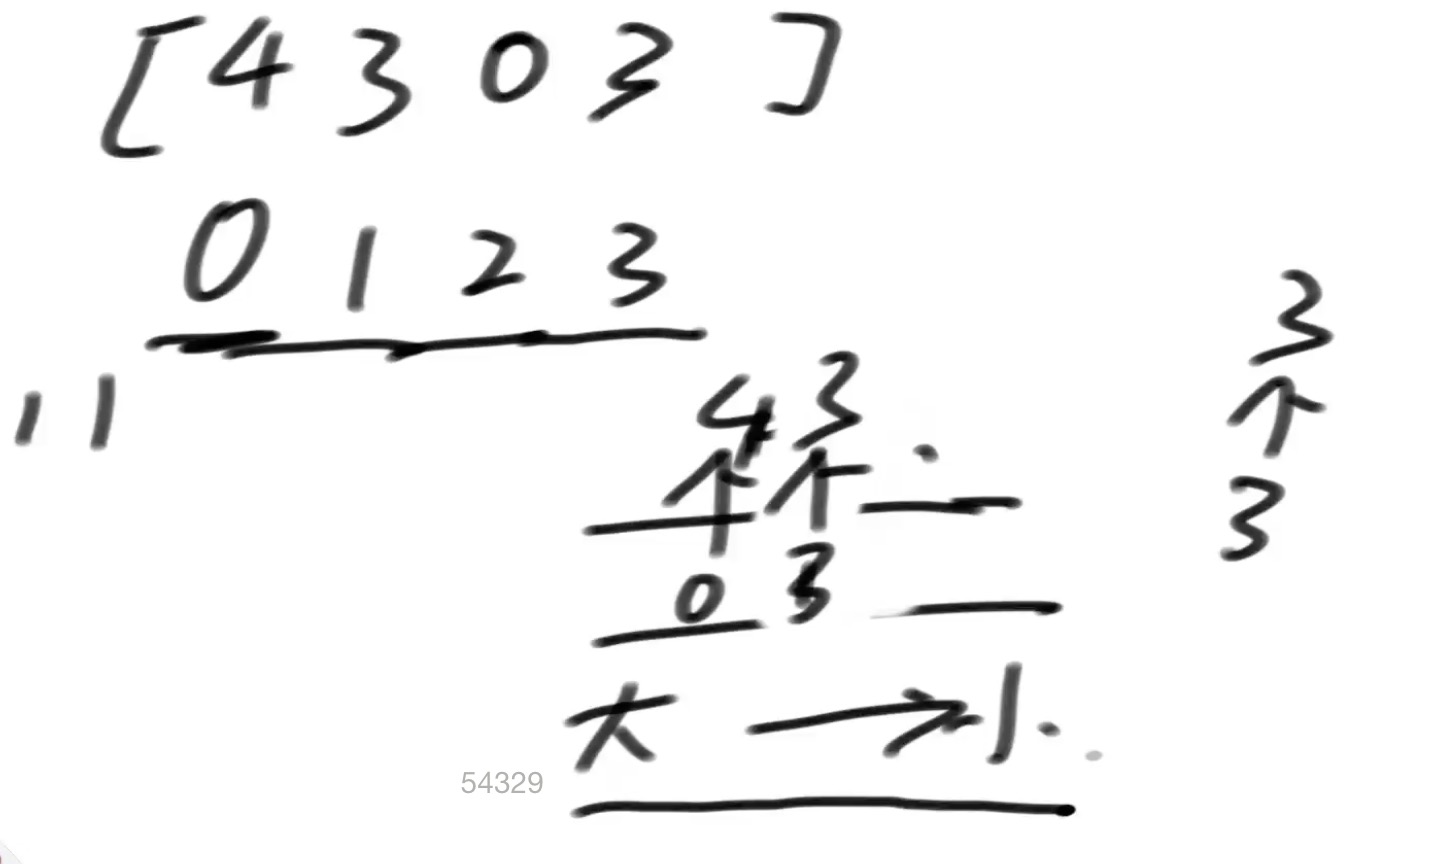 [4 3 0 3]
0 1 2 3
3
11
4 3
↑ ↑ ↑
3
0 3
大 → 小
54329